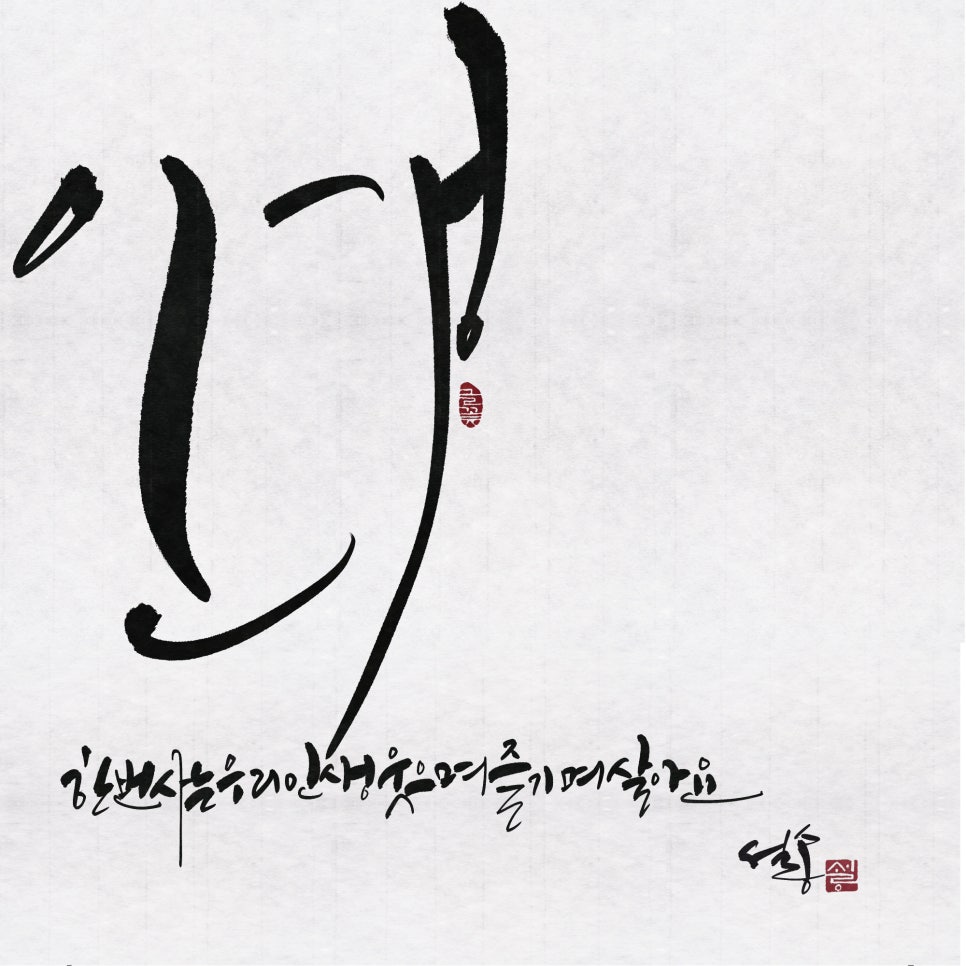 인생
글꽃
한번 사는 우리 인생 웃으며 즐기며 살아요
설송